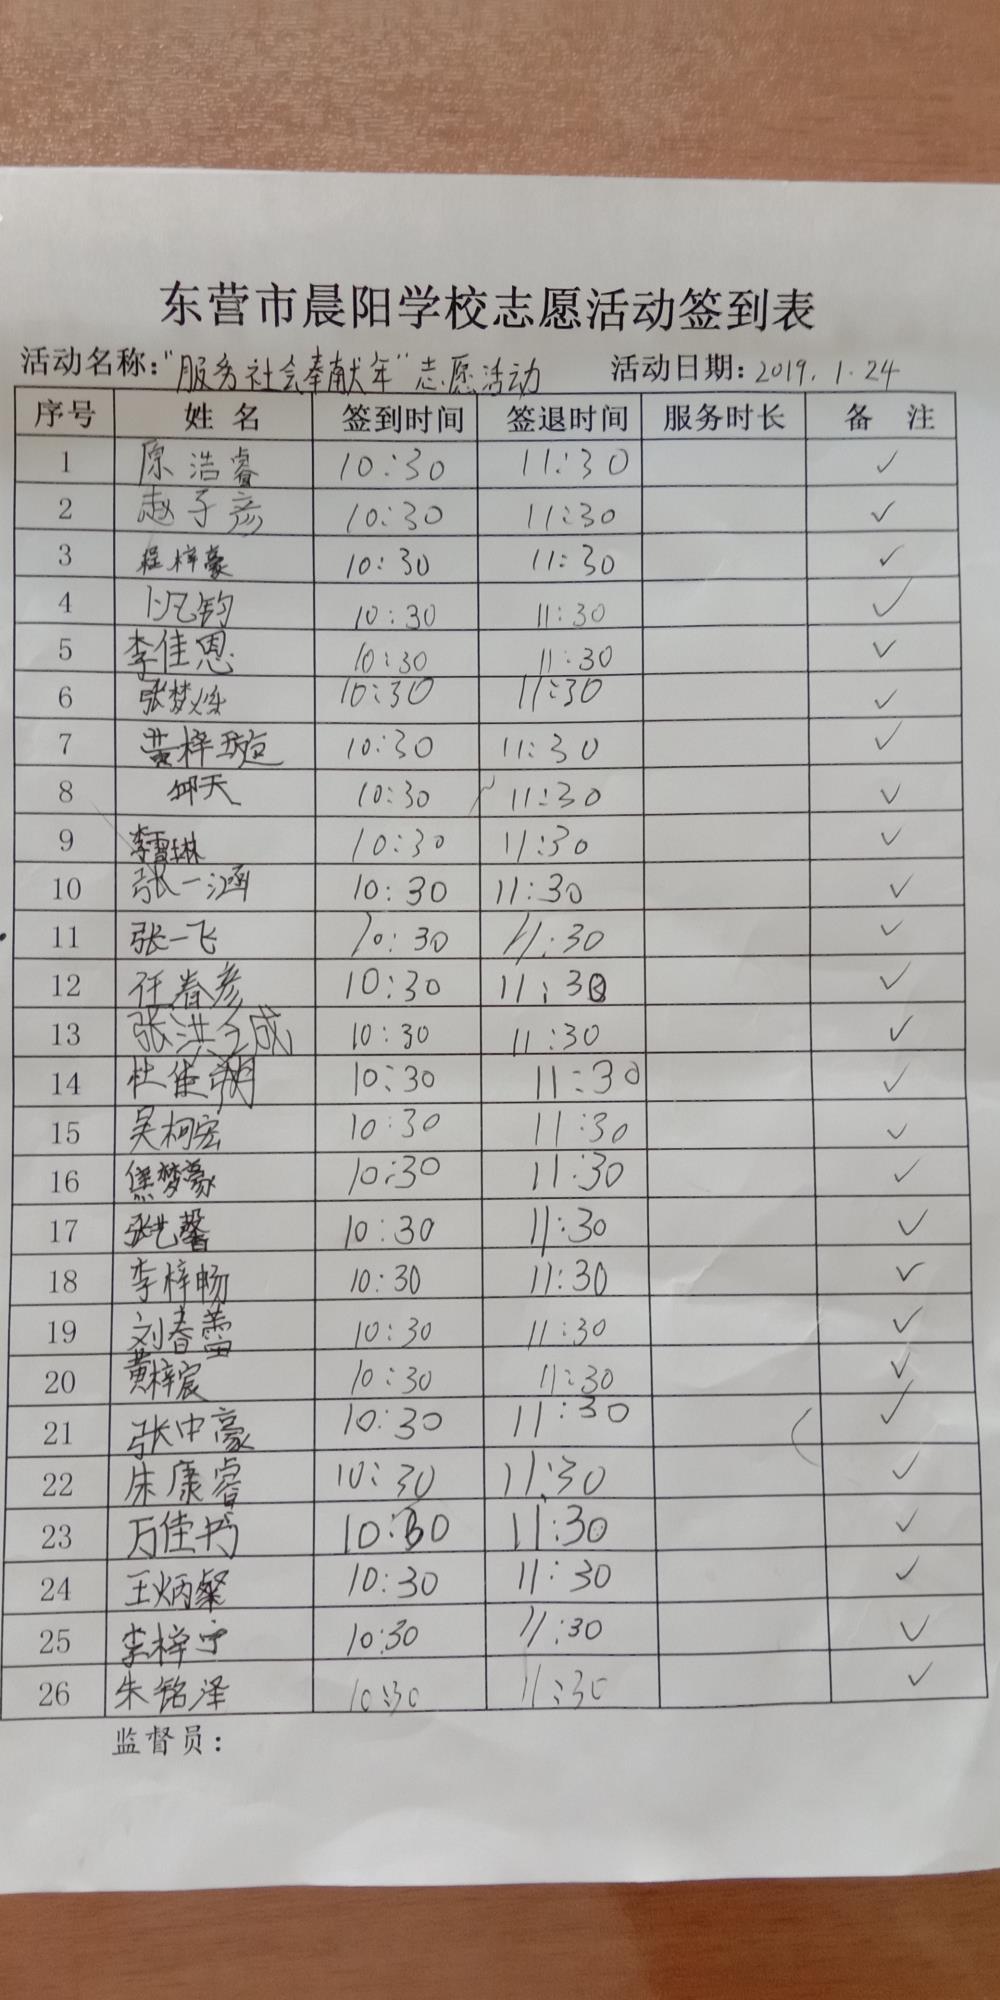 东营市晨阳学校志愿活动签到表
活动名称："服务社会奉献年"志愿活动 活动日期：2019.1.24
序号 姓名 签到时间 签退时间 服务时长 备 注
1 原浩睿 10:30 11:30 ✓
2 赵子彦 10:30 11:30 ✓
3 程梓豪 10:30 11:30 ✓
4 卜凡钧 10:30 11:30 ✓
5 李佳恩 10:30 11:30 ✓
6 张梦 10:30 11:30 ✓
7 黄梓璇 10:30 11:30 ✓
8 天 10:30 11:30 ✓
9 李雪琳 10:30 11:30 ✓
10 张一涵 10:30 11:30 ✓
11 张一飞 10:30 11:30 ✓
12 任春彦 10:30 11:30 ✓
13 张洪 10:30 11:30 ✓
14 杜佳 10:30 11:30 ✓
15 吴柯宏 10:30 11:30 ✓
16 梦豪 10:30 11:30 ✓
17 张艺馨 10:30 11:30 ✓
18 李梓畅 10:30 11:30 ✓
19 刘春蕾 10:30 11:30 ✓
20 黄梓宸 10:30 11:30 ✓
21 张中豪 10:30 11:30 ✓
22 朱康睿 10:30 11:30 ✓
23 万佳书 10:30 11:30 ✓
24 王炳粲 10:30 11:30 ✓
25 李梓宁 10:30 11:30 ✓
26 朱铭泽 10:30 11:30 ✓
监督员：